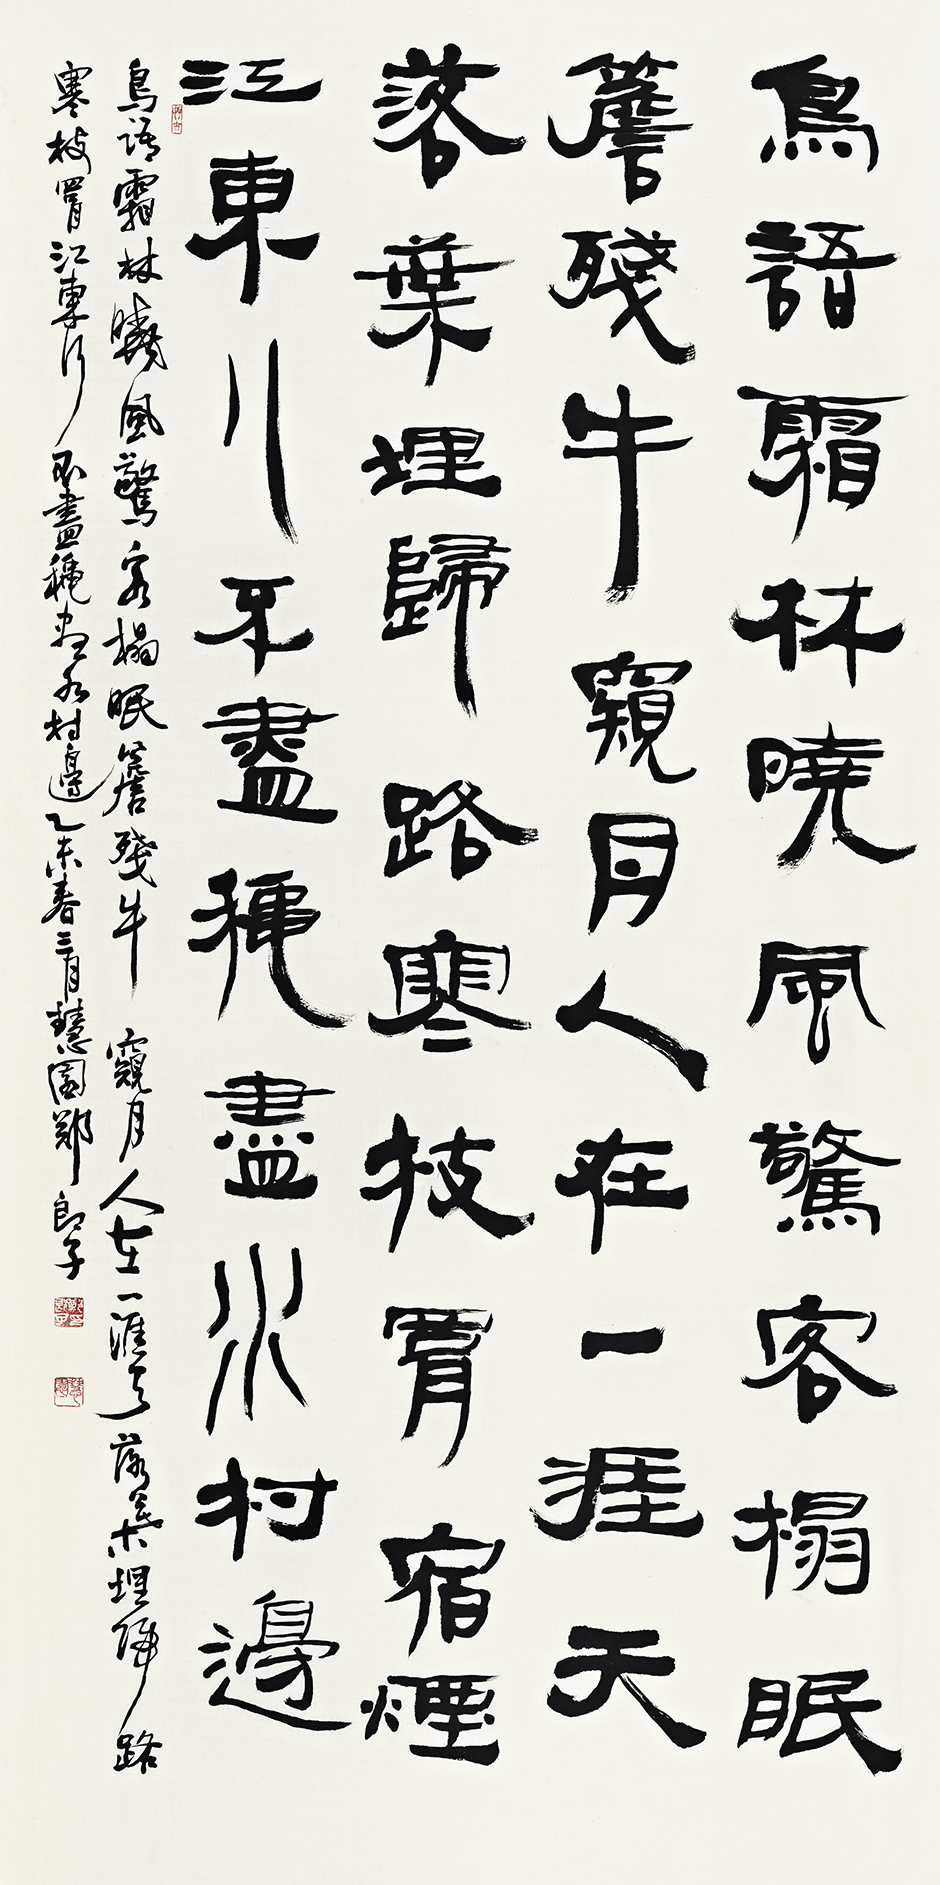 鳥語霜林曉風驚客榻眠
簷殘牛窺月人在一涯天
落葉埋歸路寒枝罥宿煙
江東行不盡穐盡水村邊
鳥語霜林曉風驚客榻眠簷殘牛窺月人在一涯天落葉埋歸路
寒枝罥江東行不盡穐盡水村邊乙未春三月慧園鄭郎子